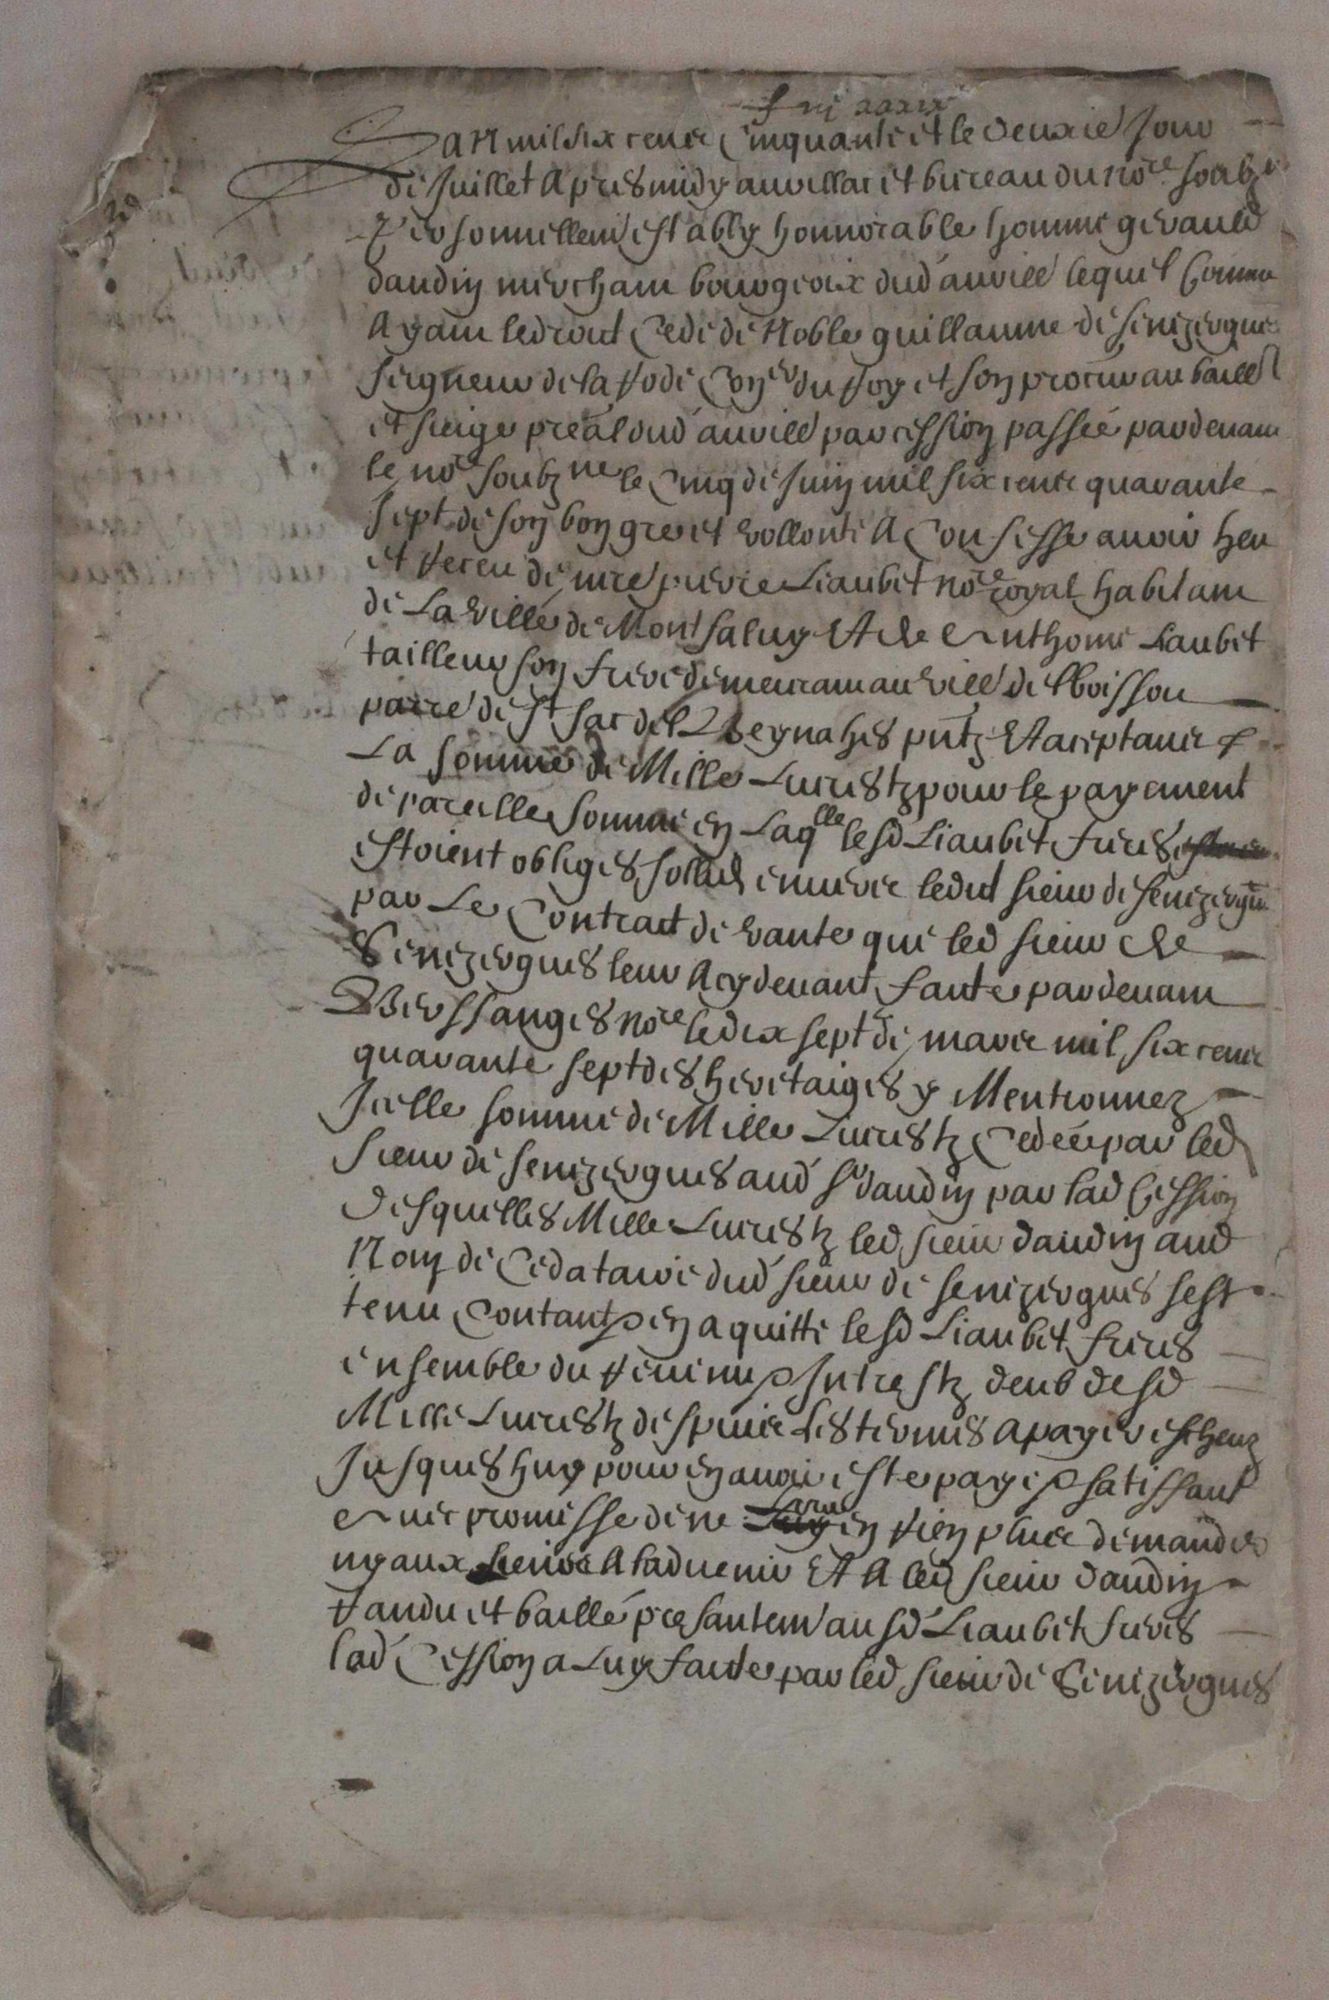 f vi xxxix
Lan mil six cens cinquante et le deuxie Jour
de Juillet apres midy aurillac et bureau du nore soubz ne
personnellem establÿ honnorable homme geraud
daudin merchant bourgeois dud aurill lequel comme
ayant le droit cede de Noble guillaume de senezergues
seigneur de la rode Coner du roy et son procur au baill
et siege preal dud aurill par cession passée pardevant
le nore soubz ne le cinq de Juin mil six cens quarante
sept de son bon gre et vollonte a Confesse avoir heu
et receu de mre pierre Liaubet nore royal habitant
de La ville de Montsalvy Et de Anthoine Liaubet
tailleur son frere demeurant au vill del boissou
parre de st sat del Veynahes pntz Et aceptans
La somme de Mille Livres tz pour le payement
de pareille somme en Laqlle lesd Liaubet freres
estoient obliges sollid envers ledit sieur de senezergues
par Le Contract de vante que led sieur de
Senezergues leur a cy devant faite pardevant
Verssanges nore le dix sept de mars mil six cens
quarante sept des heretaiges y Mentionnez
Icelle somme de Mille Livres tz Cedée par led
sieur de senezergues aud sr daudin par lad Cession
desquelles Mille Livres tz led sieur daudin aud
Nom de Cedataire dud sieur de senezergues sest
tenu Contant en a quitte lesd Liaubet freres
ensemble du revenu Intrestz deub desd
Mille Livres tz despuis les termes a payer escheuz
Jusques huy pour en avoir este paye satisfaut
Avec promesse de ne leur en rien plus demander
ny aux siens a ladvenir Et a led sieur daudin
randu et baillé presantem ausd Liaubet freres
lad Cession a Luy faite par led sieur de Senezergues